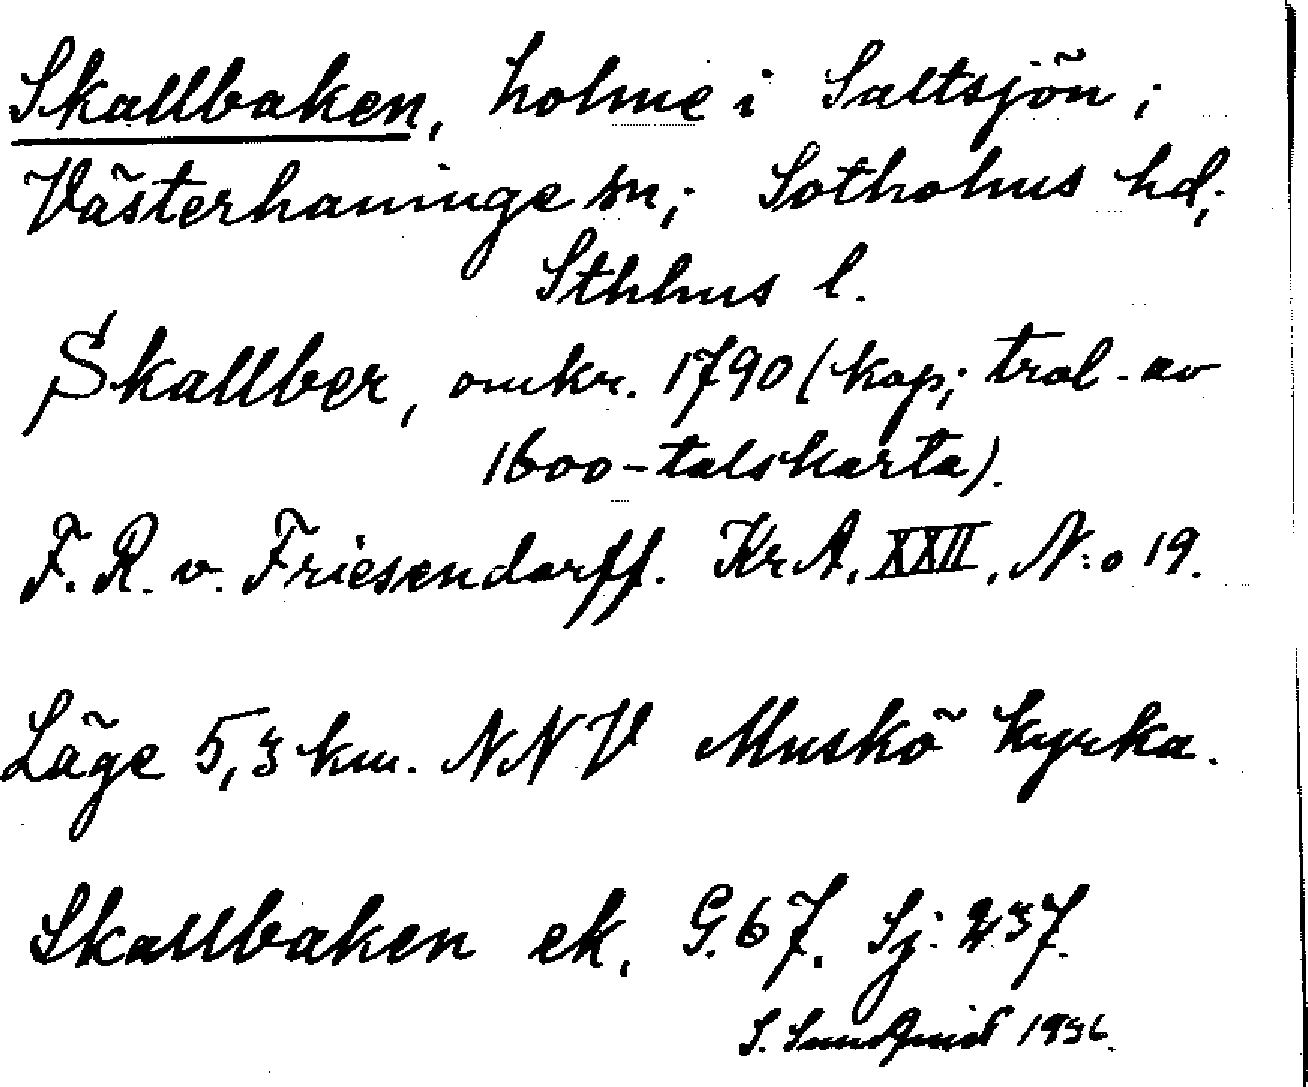 Skallbaken, holme i Saltsjön;
Västerhaninge sn; Sotholms hd;
Sthlms l.
Skallber, omkr. 1790 (kop; trol. av
1600-talskarta).
F. R. v. Friesendorff. KrA. XXII, N:o 19.
Läge 5,3 km. NNV Muskö kyrka.
Skallbaken ek. G. 67. Sj: 237.
S. Sundqvist 1936.